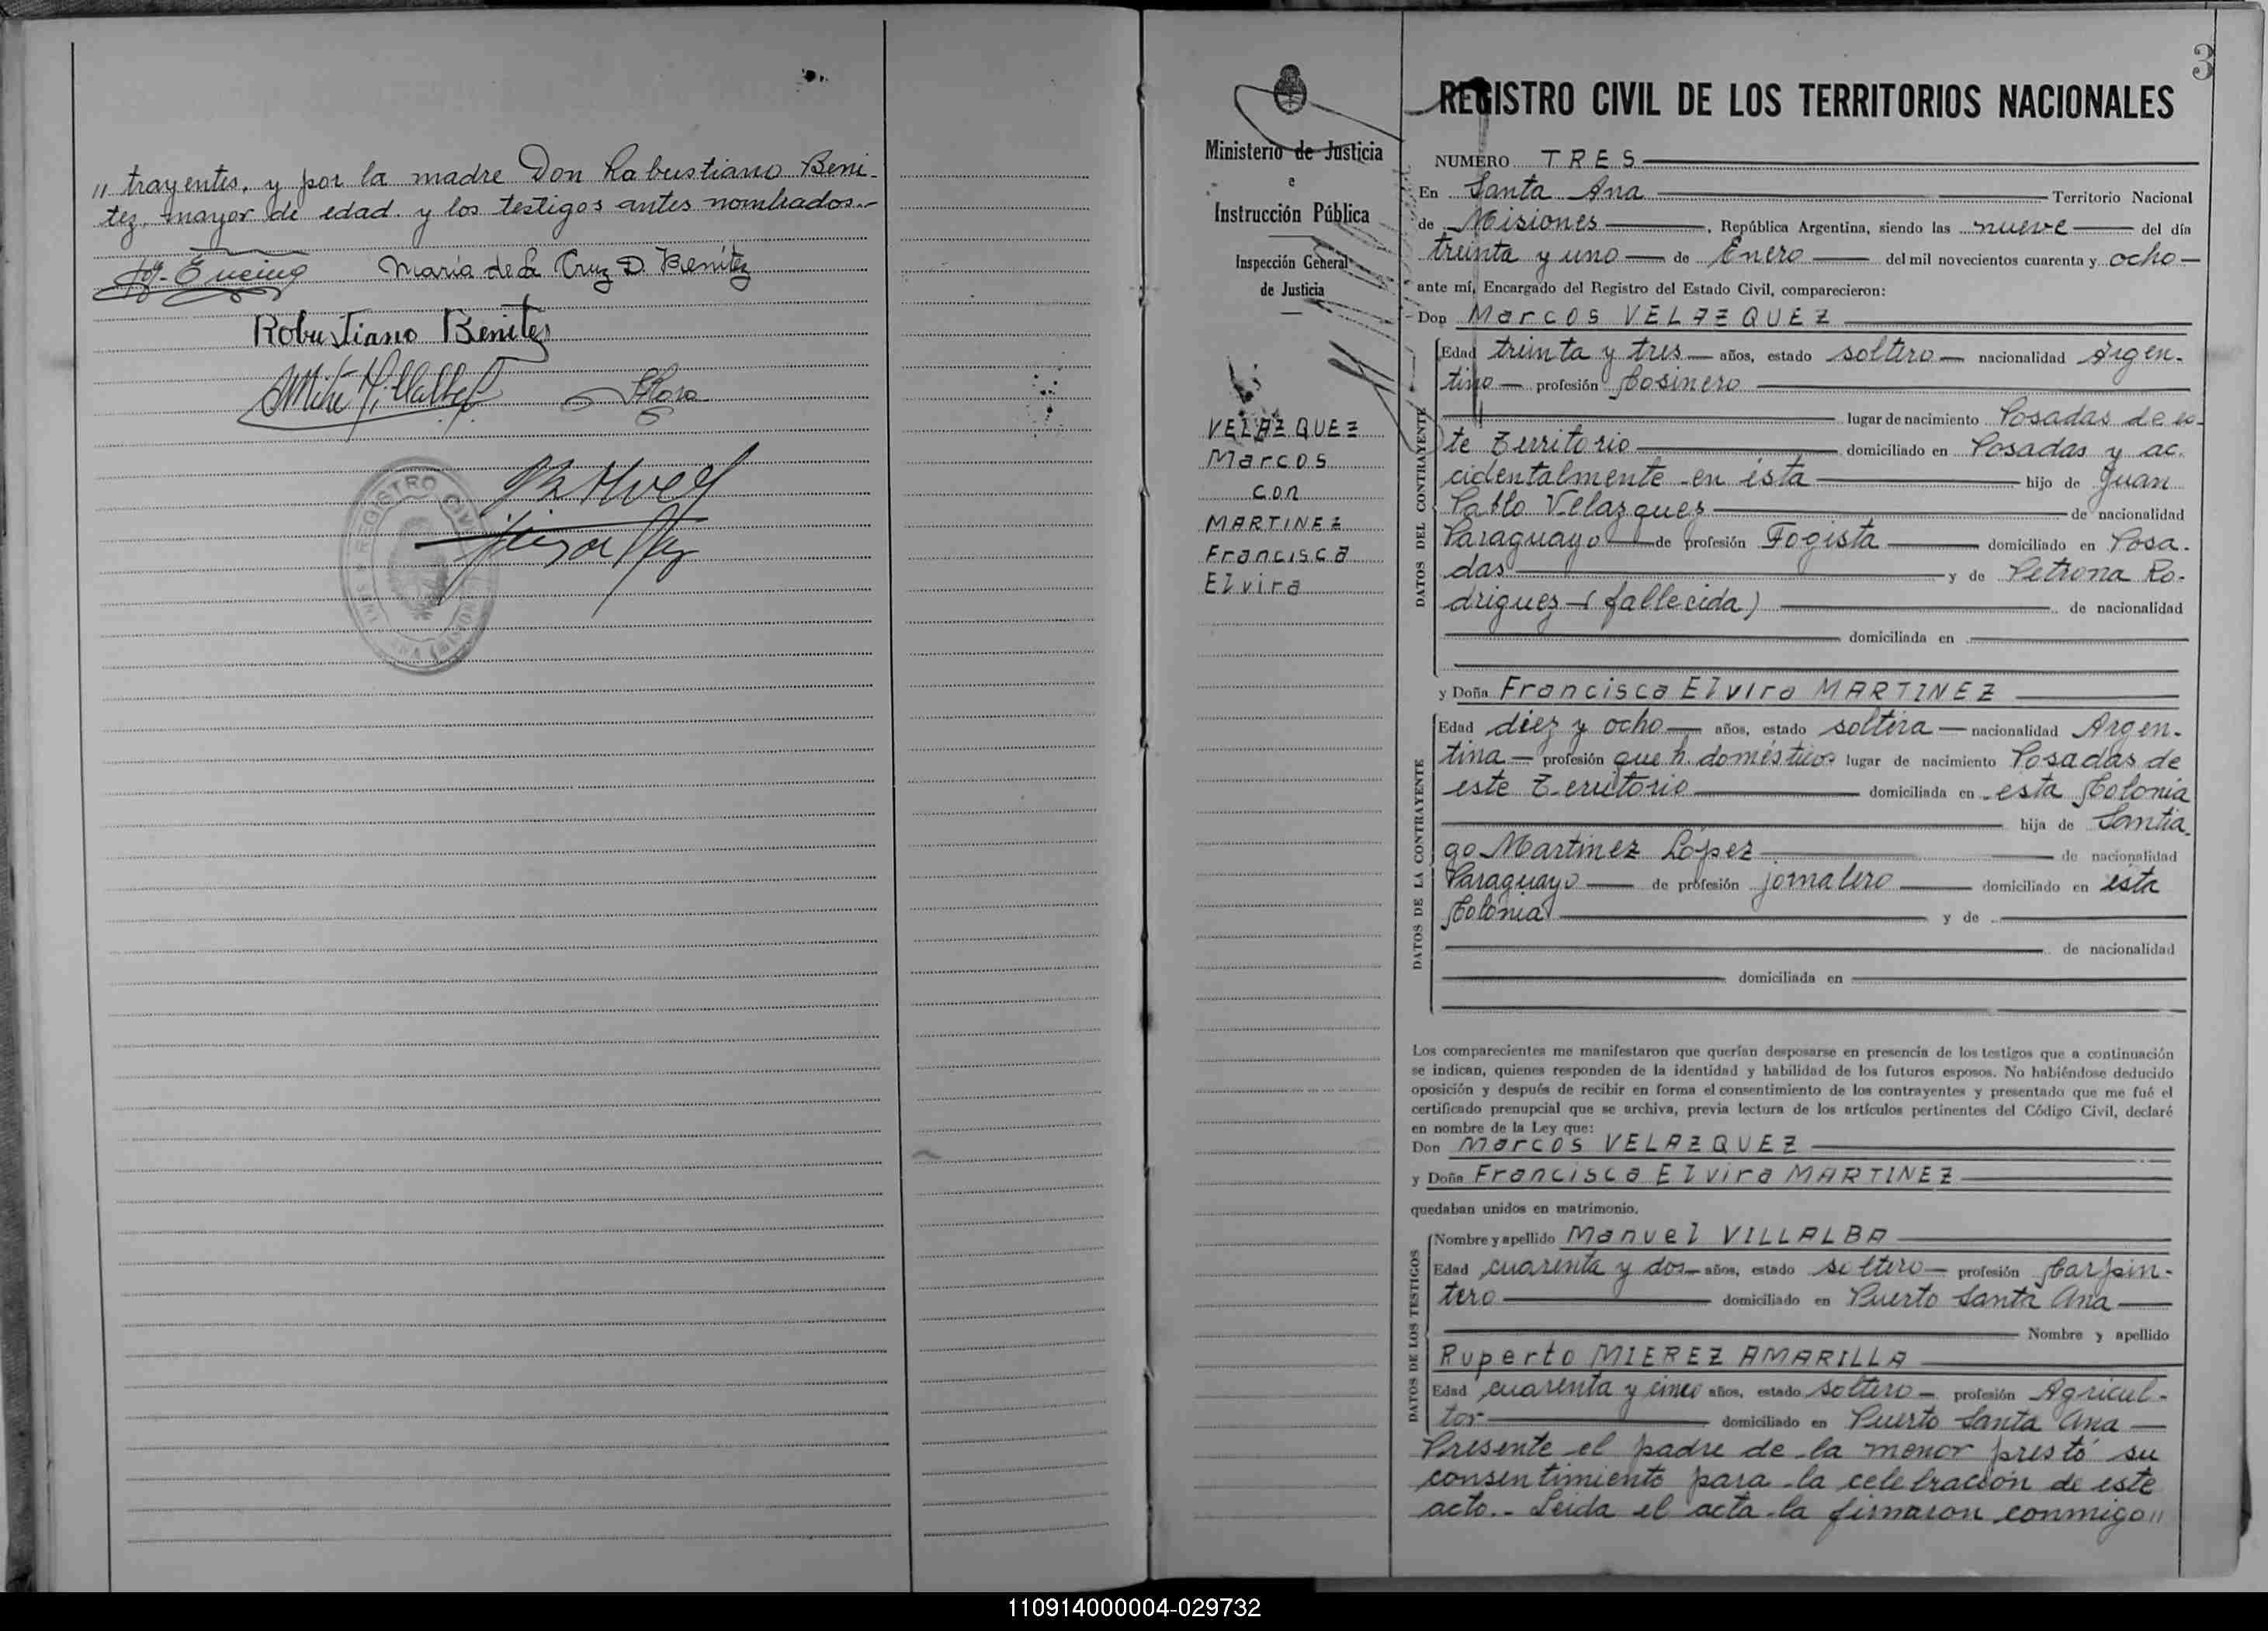 " trayentes, y por la madre Don Robustiano Beni-
tez, mayor de edad y los testigos antes nombrados.-
María de la Cruz D. Benítez
Robustiano Benitez
REGISTRO CIVIL
3
Ministerio de Justicia
e
Instrucción Pública
Inspección General
de Justicia
VELAZQUEZ
Marcos
con
MARTINEZ
Francisca
Elvira
REGISTRO CIVIL DE LOS TERRITORIOS NACIONALES
NUMERO TRES
En Santa Ana Territorio Nacional
de Misiones, República Argentina, siendo las nueve del día
treinta y uno de Enero del mil novecientos cuarenta y ocho
ante mí, Encargado del Registro del Estado Civil, comparecieron:
Don Marcos VELAZQUEZ
DATOS DEL CONTRAYENTE
Edad treinta y tres años, estado soltero nacionalidad Argen-
tino profesión Cosinero
lugar de nacimiento Posadas de es-
te Territorio domiciliado en Posadas y ac-
cidentalmente en ésta hijo de Juan
Pablo Velazquez de nacionalidad
Paraguayo de profesión Fogista domiciliado en Posa-
das y de Petrona Ro-
driguez (fallecida) de nacionalidad
domiciliada en
y Doña Francisca Elvira MARTINEZ
DATOS DE LA CONTRAYENTE
Edad diez y ocho años, estado soltera nacionalidad Argen-
tina profesión que h. domésticos lugar de nacimiento Posadas de
este Territorio domiciliada en esta Colonia
hija de Santia-
go Martinez López de nacionalidad
Paraguayo de profesión jornalero domiciliado en esta
Colonia y de
de nacionalidad
domiciliada en
Los comparecientes me manifestaron que querían desposarse en presencia de los testigos que a continuación
se indican, quienes responden de la identidad y habilidad de los futuros esposos. No habiéndose deducido
oposición y después de recibir en forma el consentimiento de los contrayentes y presentado que me fué el
certificado prenupcial que se archiva, previa lectura de los artículos pertinentes del Código Civil, declaré
en nombre de la Ley que:
Don Marcos VELAZQUEZ
y Doña Francisca Elvira MARTINEZ
quedaban unidos en matrimonio.
DATOS DE LOS TESTIGOS
Nombre y apellido Manuel VILLALBA
Edad cuarenta y dos años, estado soltero profesión Carpin-
tero domiciliado en Puerto Santa Ana
Nombre y apellido
Ruperto MIEREZ AMARILLA
Edad cuarenta y cinco años, estado soltero profesión Agricul-
tor domiciliado en Puerto Santa Ana
Presente el padre de la menor prestó su
consentimiento para la celebración de este
acto.- Leida el acta la firmaron conmigo "
110914000004-029732